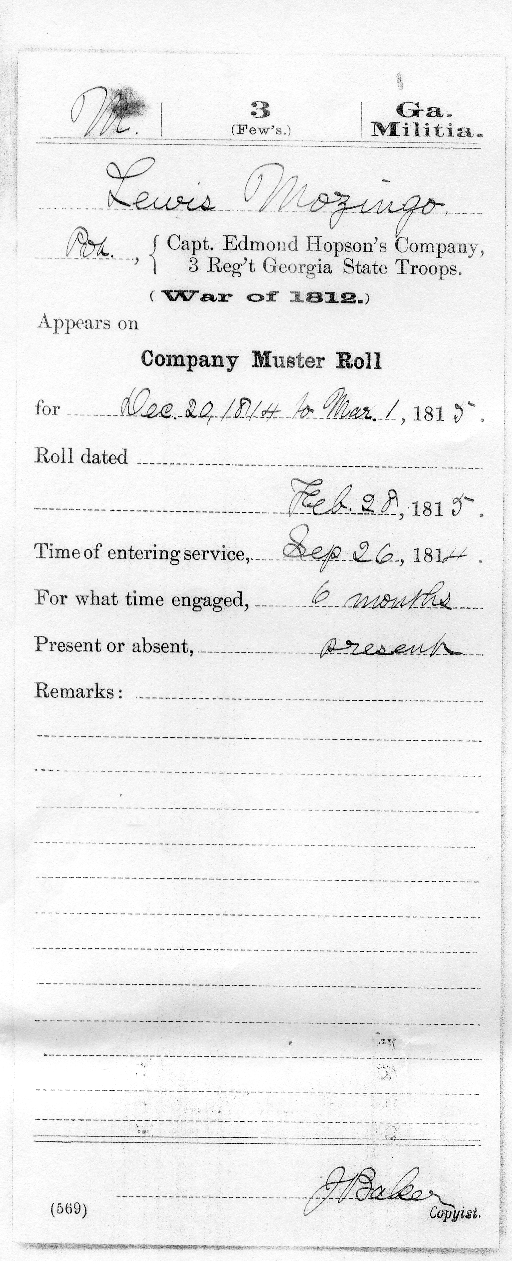 M. 3 Ga.
(Few's.) Militia.
Lewis Mozingo.
Pvt., { Capt. Edmond Hopson's Company,
3 Reg't Georgia State Troops.
(War of 1812.)
Appears on
Company Muster Roll
for Dec. 20, 1814 to Mar. 1, 1815.
Roll dated
Feb. 28, 1815.
Time of entering service, Sep 26, 1814.
For what time engaged, 6 months
Present or absent, present
Remarks:
J Baker
(569) Copyist.